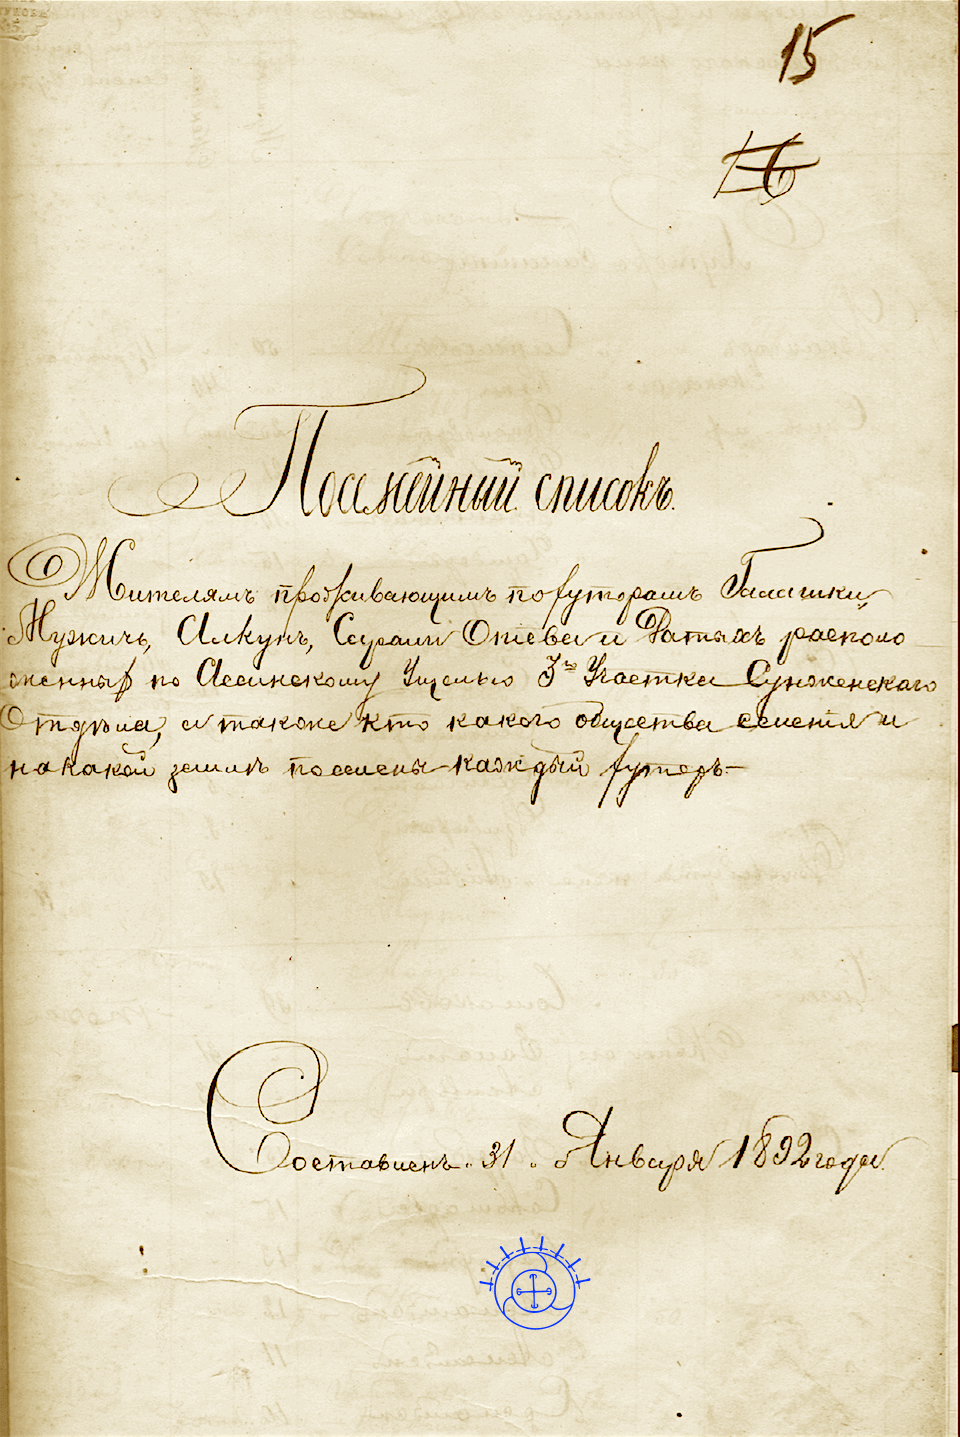 15
16
Посемейный списокъ.
Жителямъ проживающимъ по хуторамъ Галашки,
Мужичь, Алкунъ, Саурали Отіева и Датыхъ располо
женныхъ по Ассинскому Ущелью 3го Участка Сунженскаго
Отдѣла, а также кто какого общества селенія и
на какой землѣ поселены каждый хуторъ
Составленъ 31 Января 1892 года.